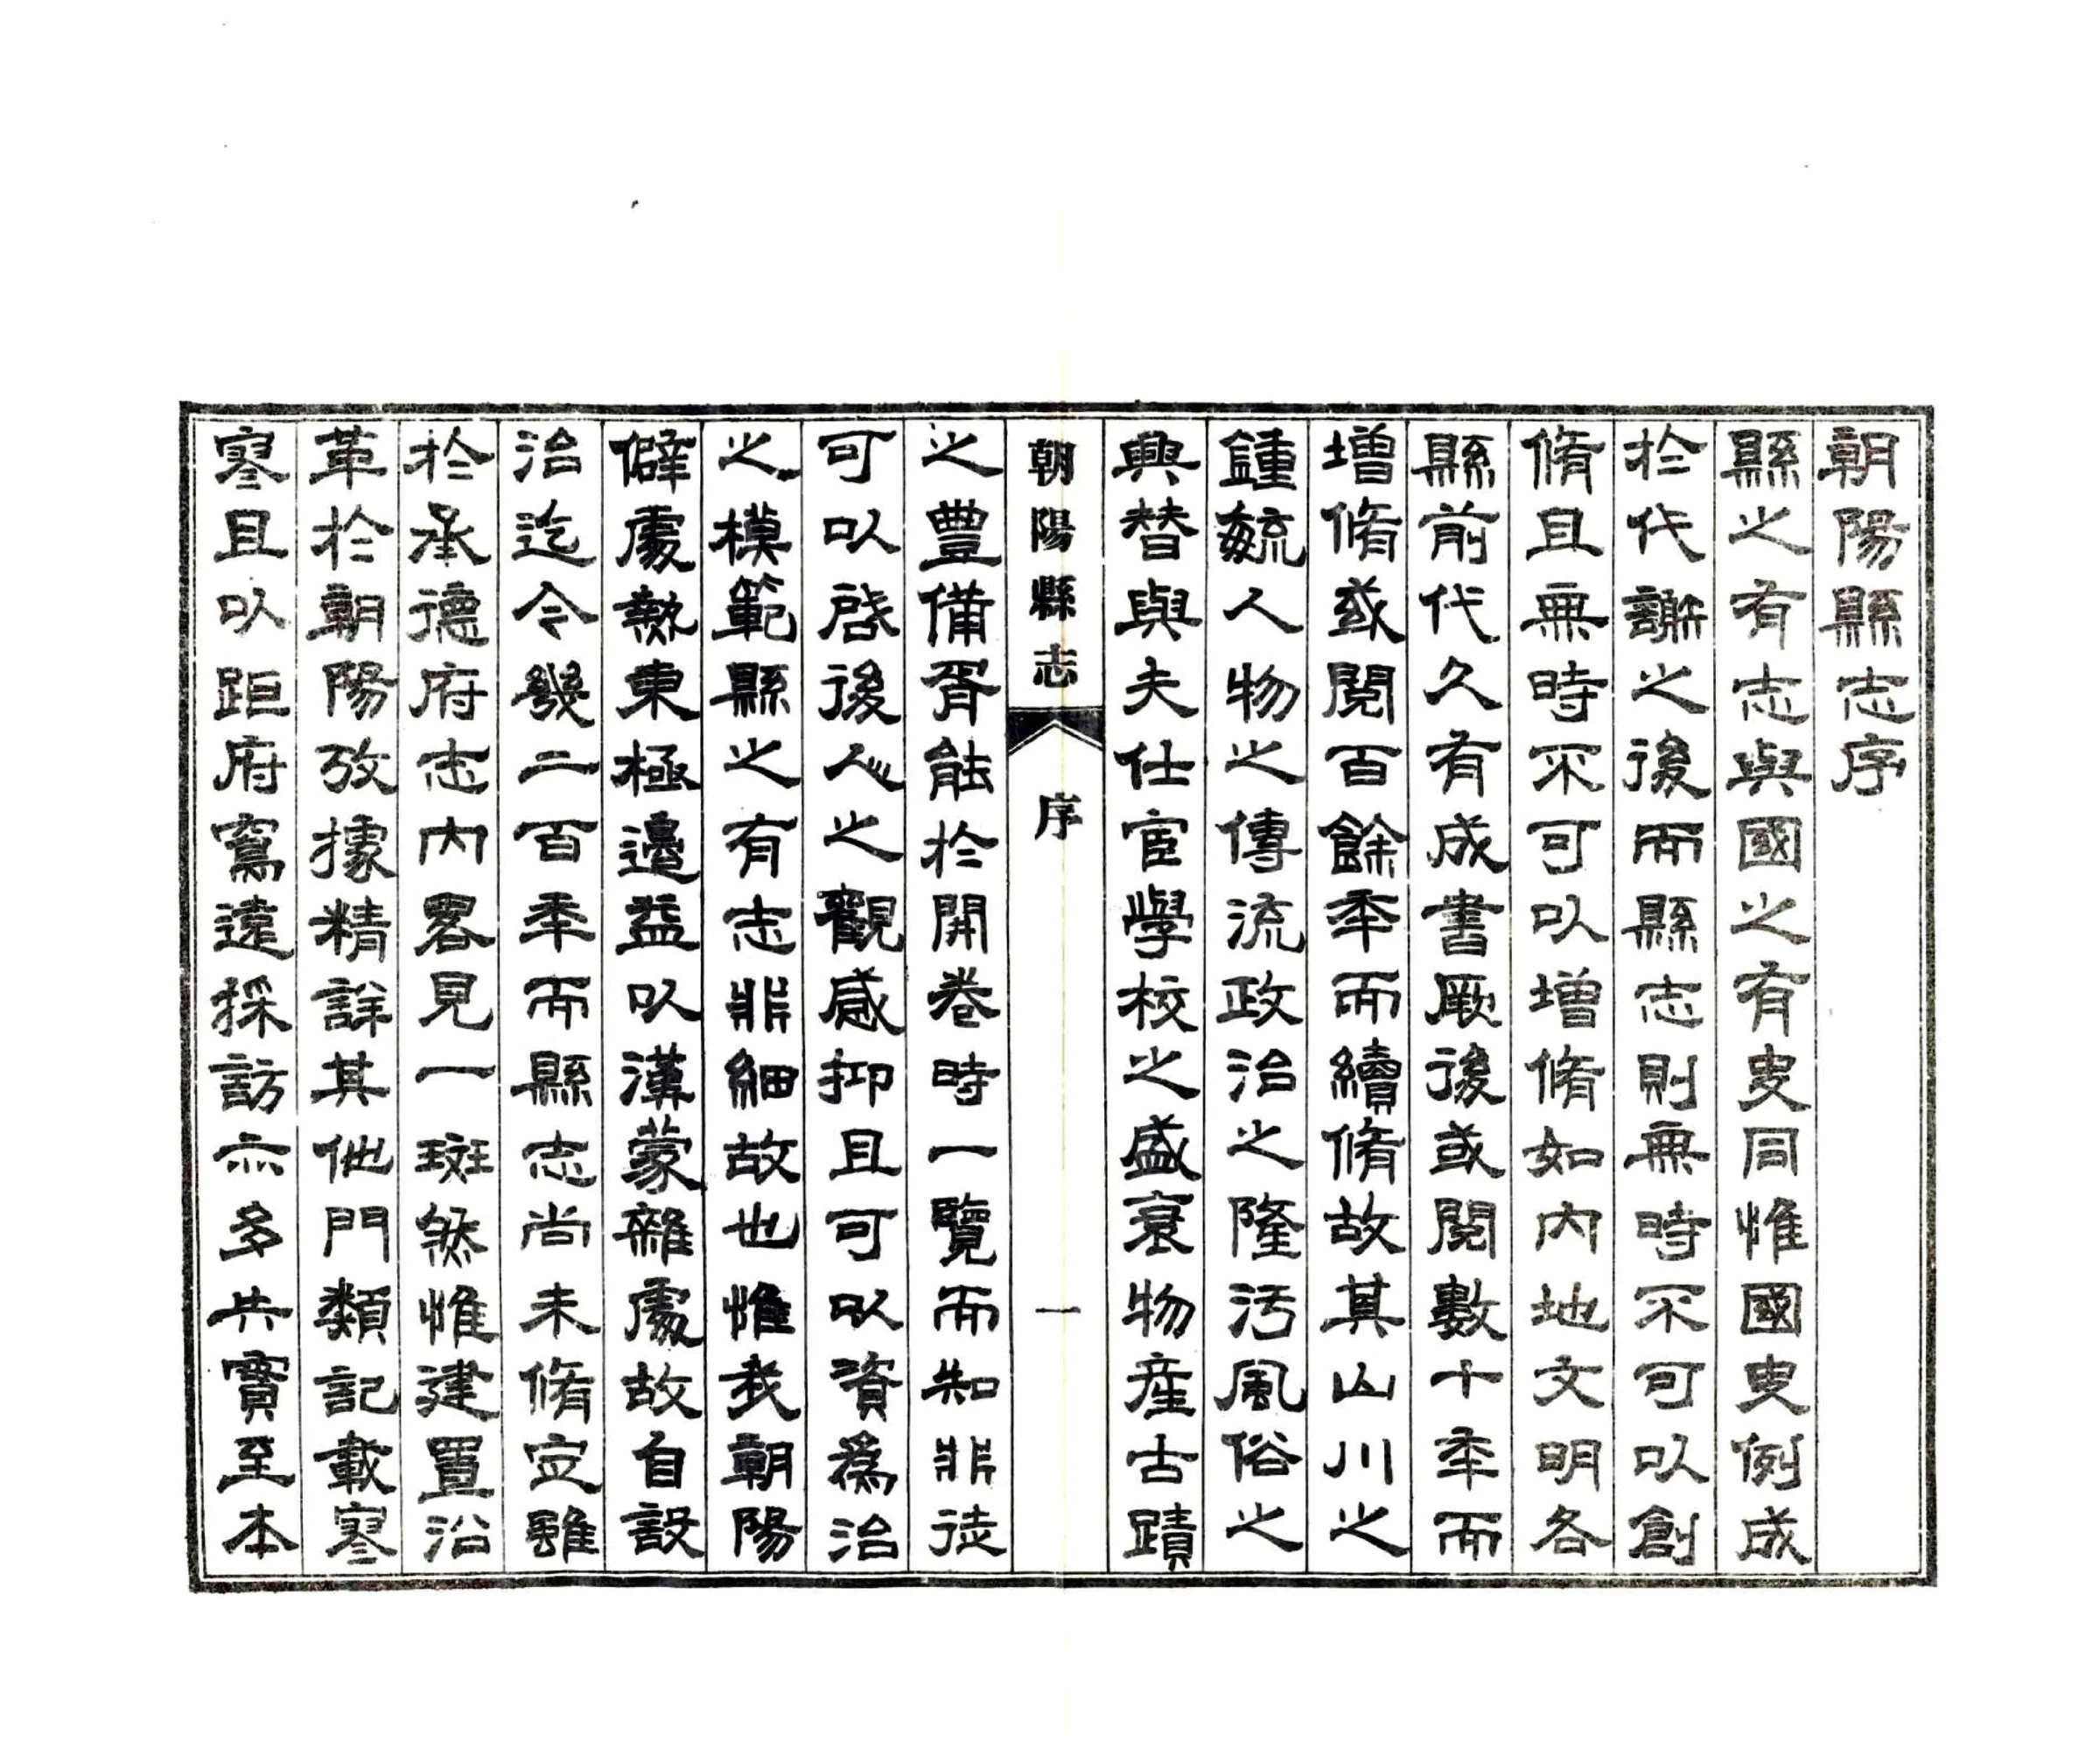 朝陽縣志序
縣之有志與國之有史同惟國史例成
於代謝之後而縣志則無時不可以創
脩且無時不可以增脩如內地文明各
縣前代久有成書厥後或閱數十年而
增脩或閱百餘年而續脩故其山川之
鍾毓人物之傳流政治之隆污風俗之
興替與夫仕宦學校之盛衰物產古蹟
朝陽縣志 序 一
之豐備胥能於開卷時一覽而知非徒
可以啓後人之觀感抑且可以資爲治
之模範縣之有志非細故也惟我朝陽
僻處熱東極邊益以漢蒙雜處故自設
治迄今幾二百年而縣志尚未脩定雖
於承德府志內畧見一斑然惟建置沿
革於朝陽攷據精詳其他門類記載寥
寥且以距府寫遠採訪亦多失實至本